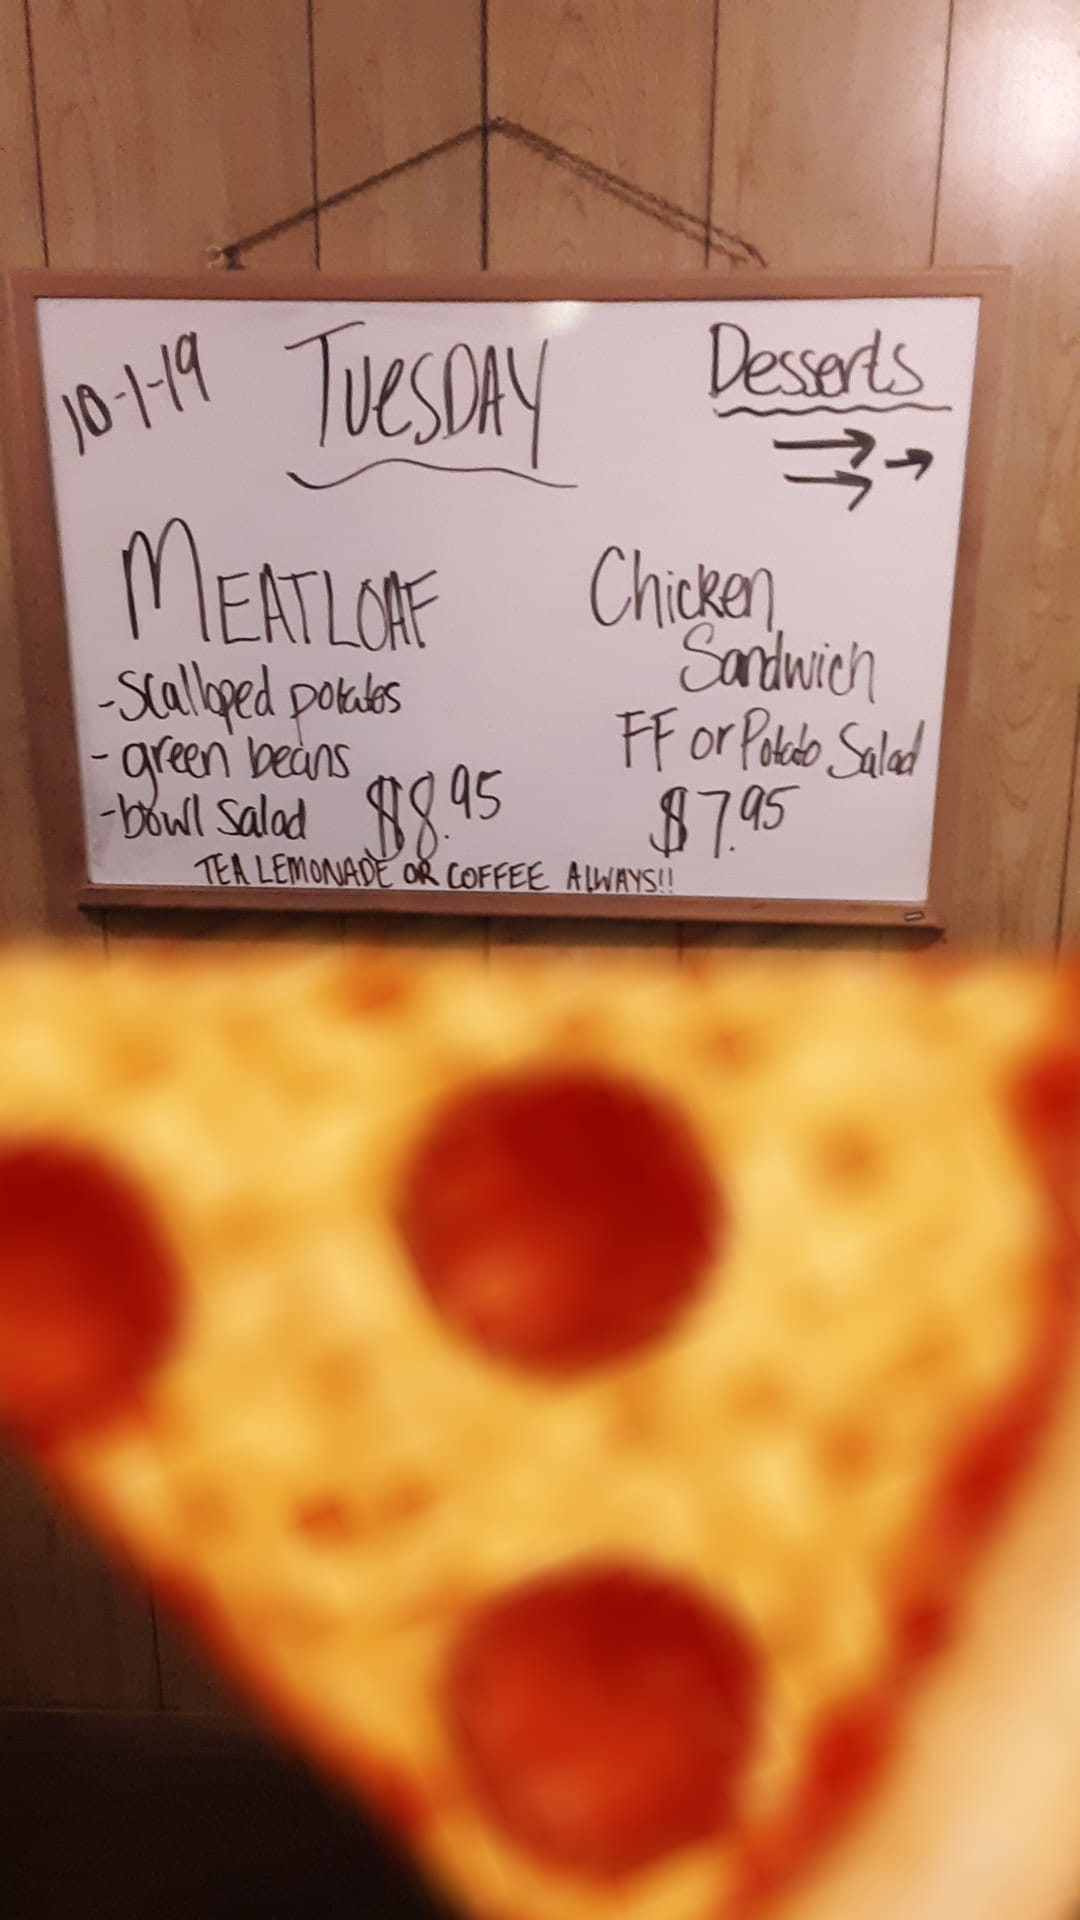 10-1-19
TUESDAY
Desserts
MEATLOAF
-Scalloped potatos
-green beans
-bowl salad $8.95
Chicken
Sandwich
FF or Potato Salad
$7.95
TEA LEMONADE OR COFFEE ALWAYS!!